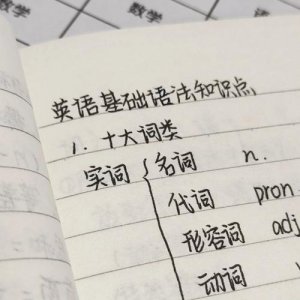 数学
数学
数学
英语基础语法知识点
1. 十大词类
实词 { 名词 n.
代词 pron
形容词 adj
动词